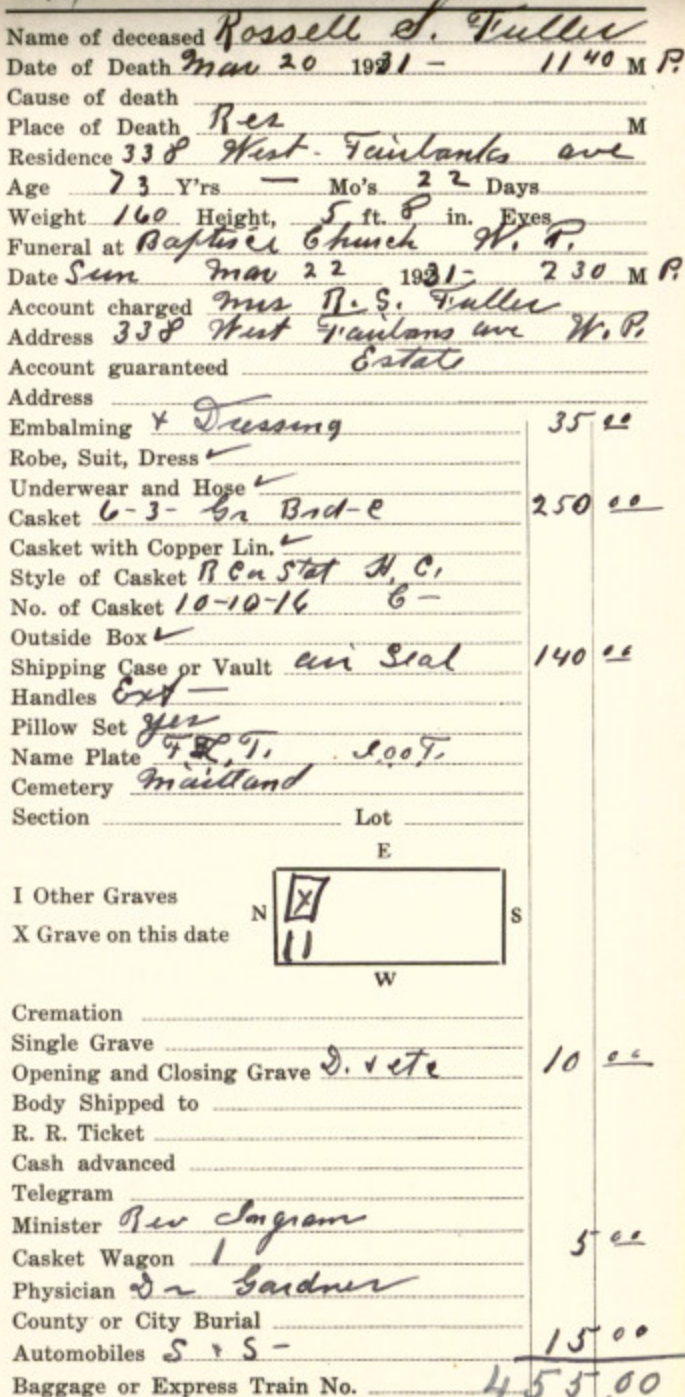 Name of deceased Rossell S. Fuller
Date of Death Mar 20 1931 - 11 40 M P.
Cause of death
Place of Death Res M
Residence 338 West - Fairbanks ave
Age 73 Y'rs — Mo's 22 Days
Weight 160 Height, 5 ft. 8 in. Eyes
Funeral at Baptist Church W. P.
Date Sun Mar 22 1931- 2 30 M P.
Account charged Mrs R. S. Fuller
Address 338 West Faribans ave W. P.
Account guaranteed Estate
Address
Embalming + Dressing 35 00
Robe, Suit, Dress ✓
Underwear and Hose ✓
Casket 6-3- Gr Brd-C 250 00
Casket with Copper Lin. ✓
Style of Casket Stat H. C.
No. of Casket 10-10-16 C -
Outside Box ✓
Shipping Case or Vault air Seal 140 00
Handles Ext —
Pillow Set yes
Name Plate F. L. T.
Cemetery Maitland
Section Lot
E
I Other Graves
N X S
X Grave on this date
II
W
Cremation
Single Grave
Opening and Closing Grave D. + etc 10 00
Body Shipped to
R. R. Ticket
Cash advanced
Telegram
Minister Rev Ingram
Casket Wagon 1 5 00
Physician Dr Gardner
County or City Burial
Automobiles S + S - 15 00
Baggage or Express Train No. 455 00